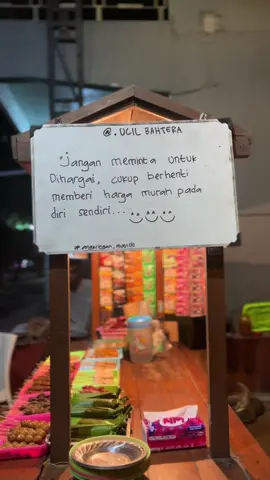 @. UCIL BAHTERA
Jangan meminta untuk
Dihargai, cukup berhenti
memberi harga murah pada
diri sendiri...